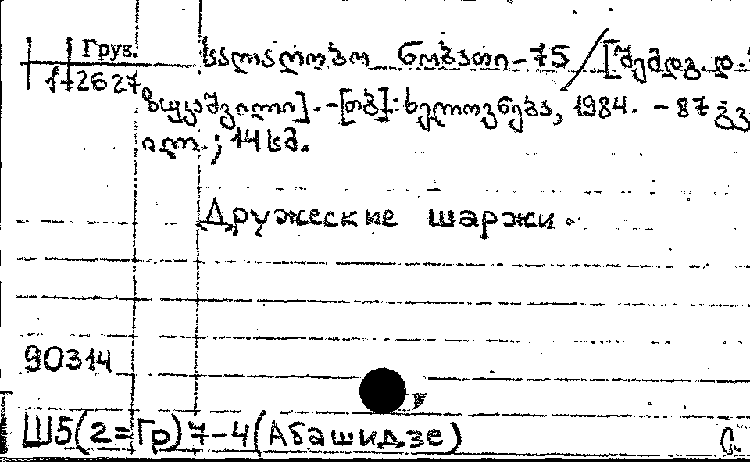 Груз. სალაღობო ნობათი-75 / [შემდგ. დ.
142627
ზსუკაშვილი]. - [თბ]: ხელოვნება, 1984. - 87 გვ
ილ.; 14 სმ.
Дружеские шаржи.
90314
Ш5(2=Гр)7-4(Абашидзе)